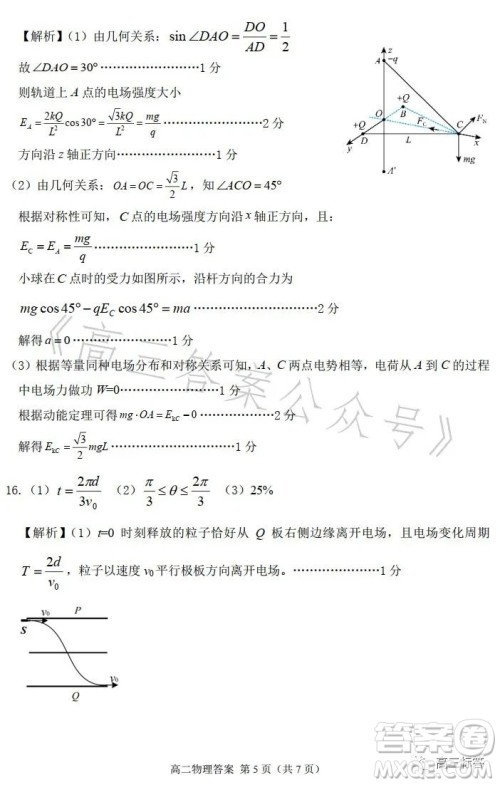 【解析】（1）由几何关系：sin∠DAO=DO/AD=1/2
故∠DAO=30°························1 分
则轨道上 A 点的电场强度大小
E_A=2kQ/L² cos30°=√3kQ/L²=mg/q ························2 分
方向沿 z 轴正方向························1 分
（2）由几何关系：OA=OC=√3/2 L，知∠ACO=45°
根据对称性可知，C 点的电场强度方向沿 x 轴正方向，且：
E_C=E_A=mg/q ························1 分
小球在 C 点时的受力如图所示，沿杆方向的合力为
mg cos45°−qE_C cos45°=ma ························2 分
解得 a=0························1 分
（3）根据等量同种电场分布和对称关系可知，A、C 两点电势相等，电荷从 A 到 C 的过程
中电场力做功 W=0························1 分
根据动能定理可得 mg·OA=E_kC ························2 分
解得 E_kC=√3/2 mgL ························1 分
z
A −q
+Q
O B +Q
F_C C F_N
y D L x
mg
A'
16.（1）t=2πd/3v₀ （2）π/3≤θ≤2π/3 （3）25%
【解析】（1）t=0 时刻释放的粒子恰好从 Q 板右侧边缘离开电场，且电场变化周期
T=2d/v₀，粒子以速度 v₀ 平行极板方向离开电场。····················1 分
v₀ P
S
v₀
Q
高二物理答案 第 5 页（共 7 页）
《高三答案公众号》
高三标答
答案圈